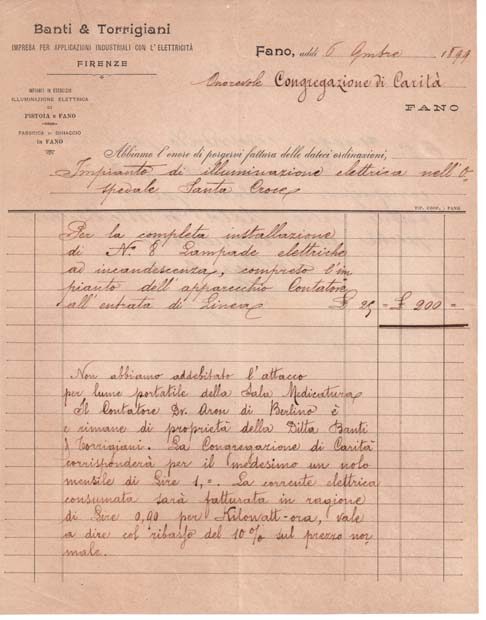 Banti & Torrigiani
IMPRESA PER APPLICAZIONI INDUSTRIALI CON L'ELETTRICITÀ
FIRENZE
IMPIANTI IN ESERCIZIO
ILLUMINAZIONE ELETTRICA
DI
PISTOIA E FANO
FABBRICA DI GHIACCIO
IN FANO
Fano, addì 6 9mbre 1899
Onorevole Congregazione di Carità
FANO
Abbiamo l'onore di porgervi fattura delle dateci ordinazioni,
Impianto di illuminazione elettrica nell'O
spedale Santa Croce
TIP. COOP., FANO
Per la completa installazione
di N.º 8 Lampade elettriche
ad incandescenza, compreso l'im
pianto dell'apparecchio Contatore
all'entrata di Linea £ 25 = £ 200 =
Non abbiamo addebitato l'attacco
per lume portatile della Sala Medicatura
Il Contatore Dr. Aron di Berlino è
e rimane di proprietà della Ditta Banti
& Torrigiani. La Congregazione di Carità
corrisponderà per il medesimo un nolo
mensile di Lire 1,=. La corrente elettrica
consumata sarà fatturata in ragione
di Lire 0,90 per Kilowatt-ora, vale
a dire col ribasso del 10% sul prezzo nor
male.